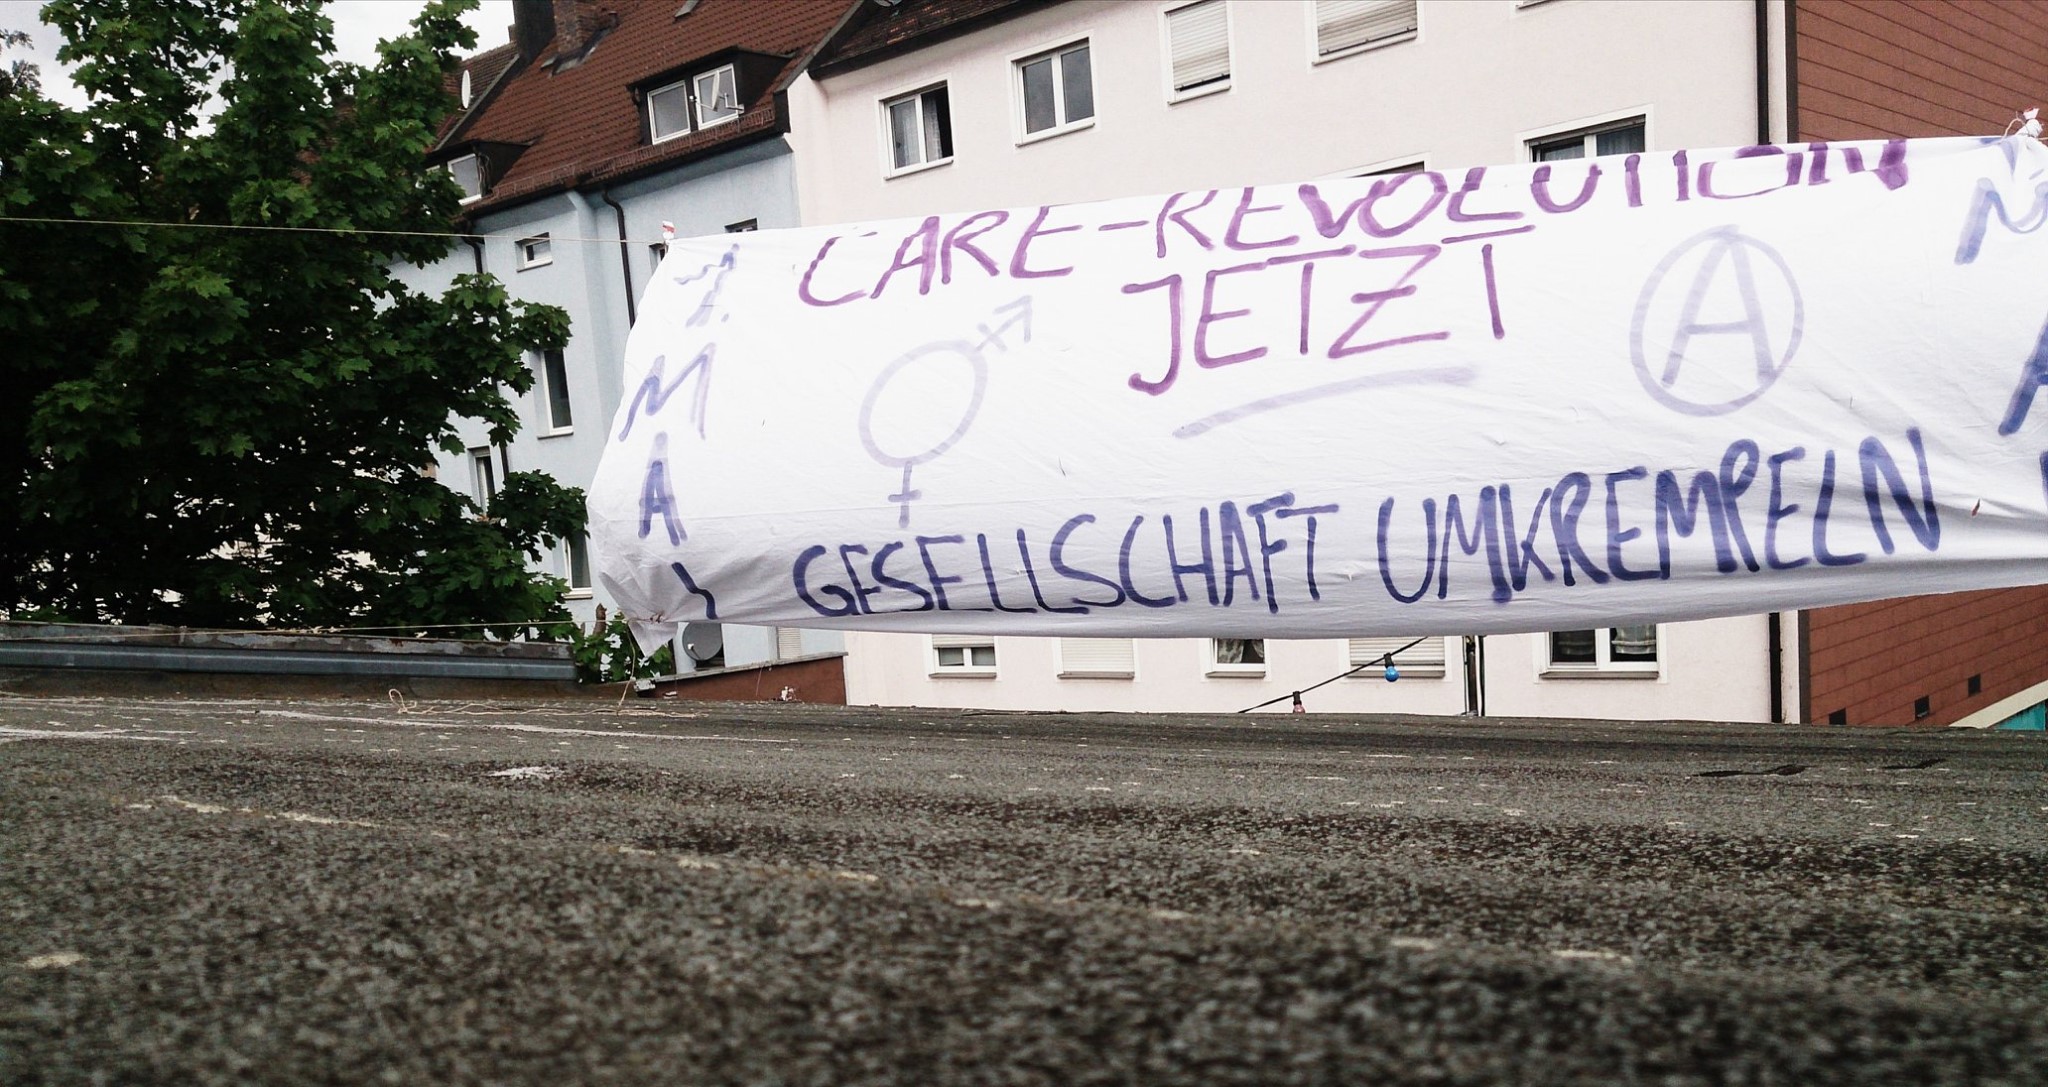 CARE-REVOLUTION
JETZT
GESELLSCHAFT UMKREMPELN
1. MAI